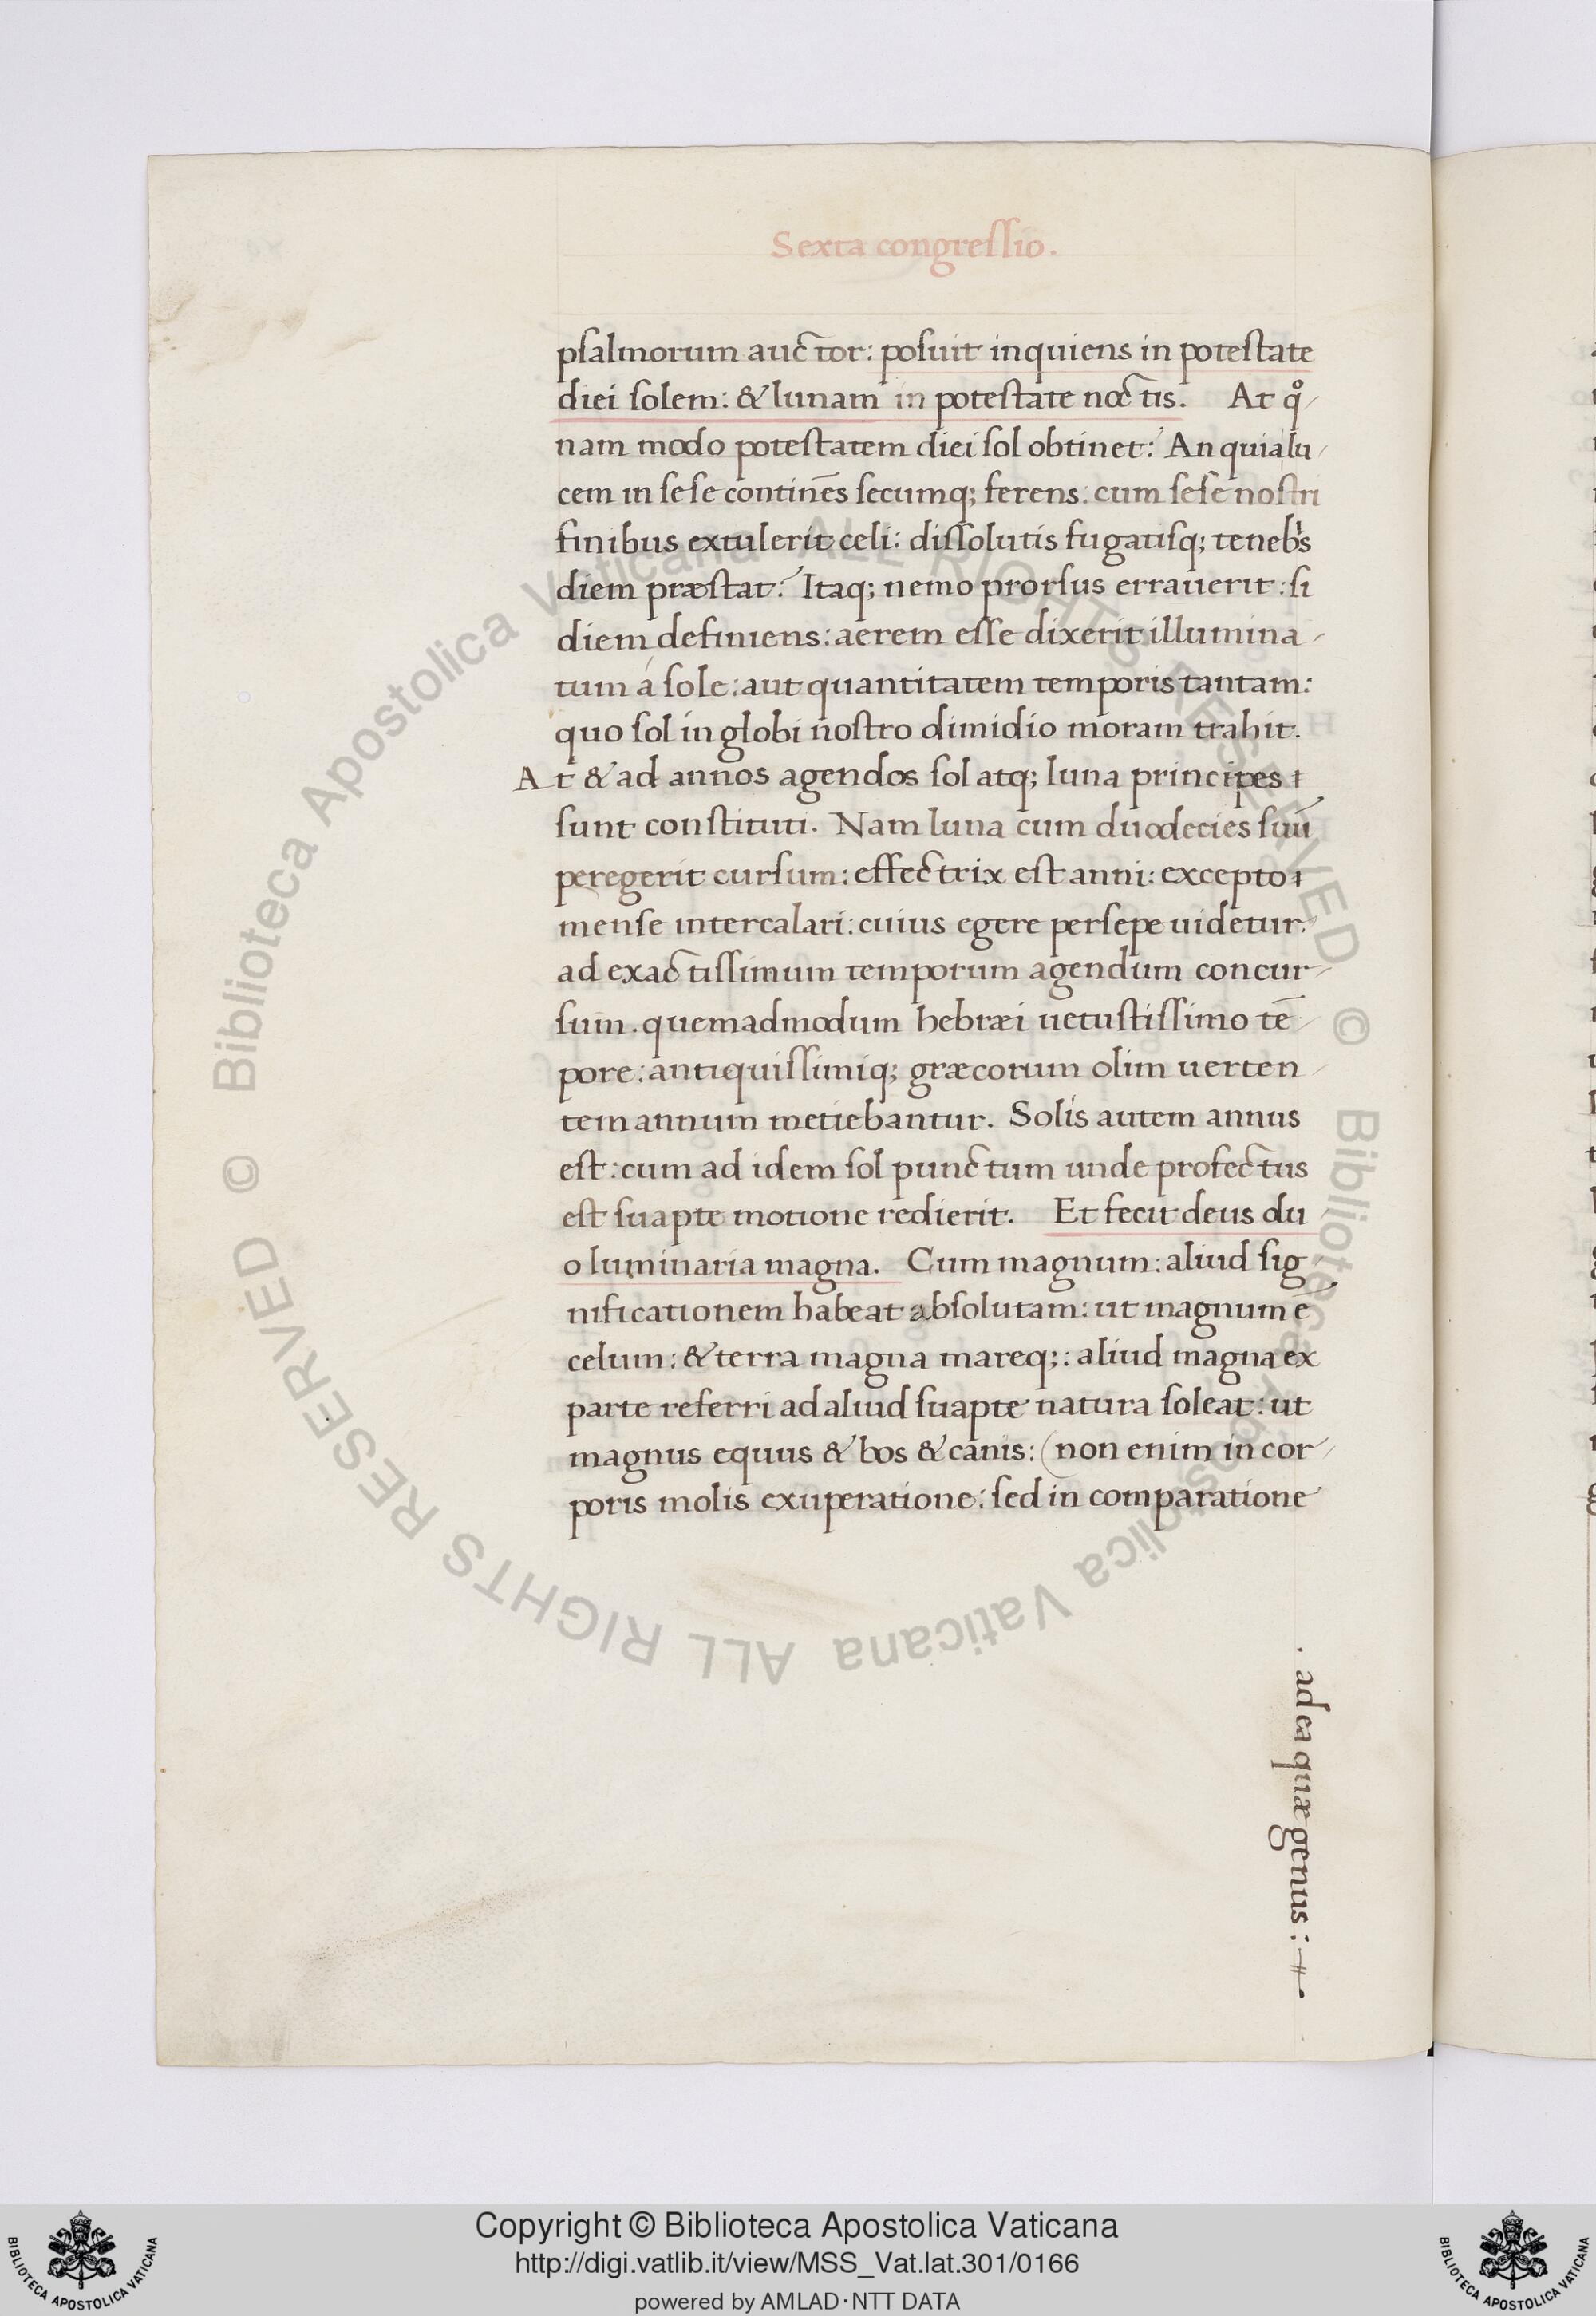 Sexta congreſſio.
pſalmorum auctor: poſuit inquiens in poteſtate
diei ſolem: & lunam in poteſtate noctis. At qͦ
nam modo poteſtatem diei ſol obtinet? An quia lu
cem in ſeſe contine̅s ſecumq; ferens: cum ſeſe noſtri
finibus extulerit celi: diſſolutis fugatiſq; tenebͥs
diem præſtat? Itaq; nemo prorſus errauerit: ſi
diem definiens: aerem eſſe dixerit illumina
tum á ſole: aut quantitatem temporis tantam:
quo ſol in globi noſtro dimidio moram trahit.
At & ad annos agendos ſol atq; luna principes
ſunt conſtituti. Nam luna cum duodecies ſuu̅
peregerit curſum: effectrix eſt anni: excepto
menſe intercalari: cuius egere perſepe uidetur:
ad exactiſſimum temporum agendum concur
ſum. quemadmodum hebræi uetuſtiſſimo te̅
pore: antiquiſſimiq; græcorum olim uerten
tem annum metiebantur. Solis autem annus
eſt: cum ad idem ſol punctum unde profectus
eſt ſuapte motione redierit. Et fecit deus du
o luminaria magna. Cum magnum: aliud ſig
nificationem habeat abſolutam: ut magnum e̅
celum: & terra magna mareq;: aliud magna ex
parte referri ad aliud ſuapte natura ſoleat: ut
magnus equus & bos & canis: (non enim in cor
poris molis exuperatione: ſed in comparatione
. ad ea quæ genus:
© Biblioteca Apostolica Vaticana ALL RIGHTS RESERVED © Biblioteca Apostolica Vaticana ALL RIGHTS RESERVED
Copyright © Biblioteca Apostolica Vaticana
http://digi.vatlib.it/view/MSS_Vat.lat.301/0166
powered by AMLAD·NTT DATA
BIBLIOTECA APOSTOLICA VATICANA
BIBLIOTECA APOSTOLICA VATICANA